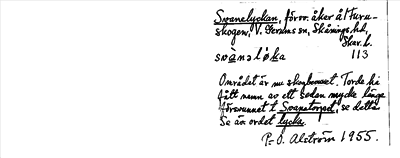 Svanelyckan, försv. åker å Ituru-
skogen, V. Ferums sn, Skånings hd,
Skar. l.
svànəlø̀ka 113
Området är nu skogbevuxet. Torde ha
fått namn av ett sedan mycket länge
försvunnet t Svanetorpet, se detta.
Se äv. ordet lycka.
P.-O. Alström 1955.